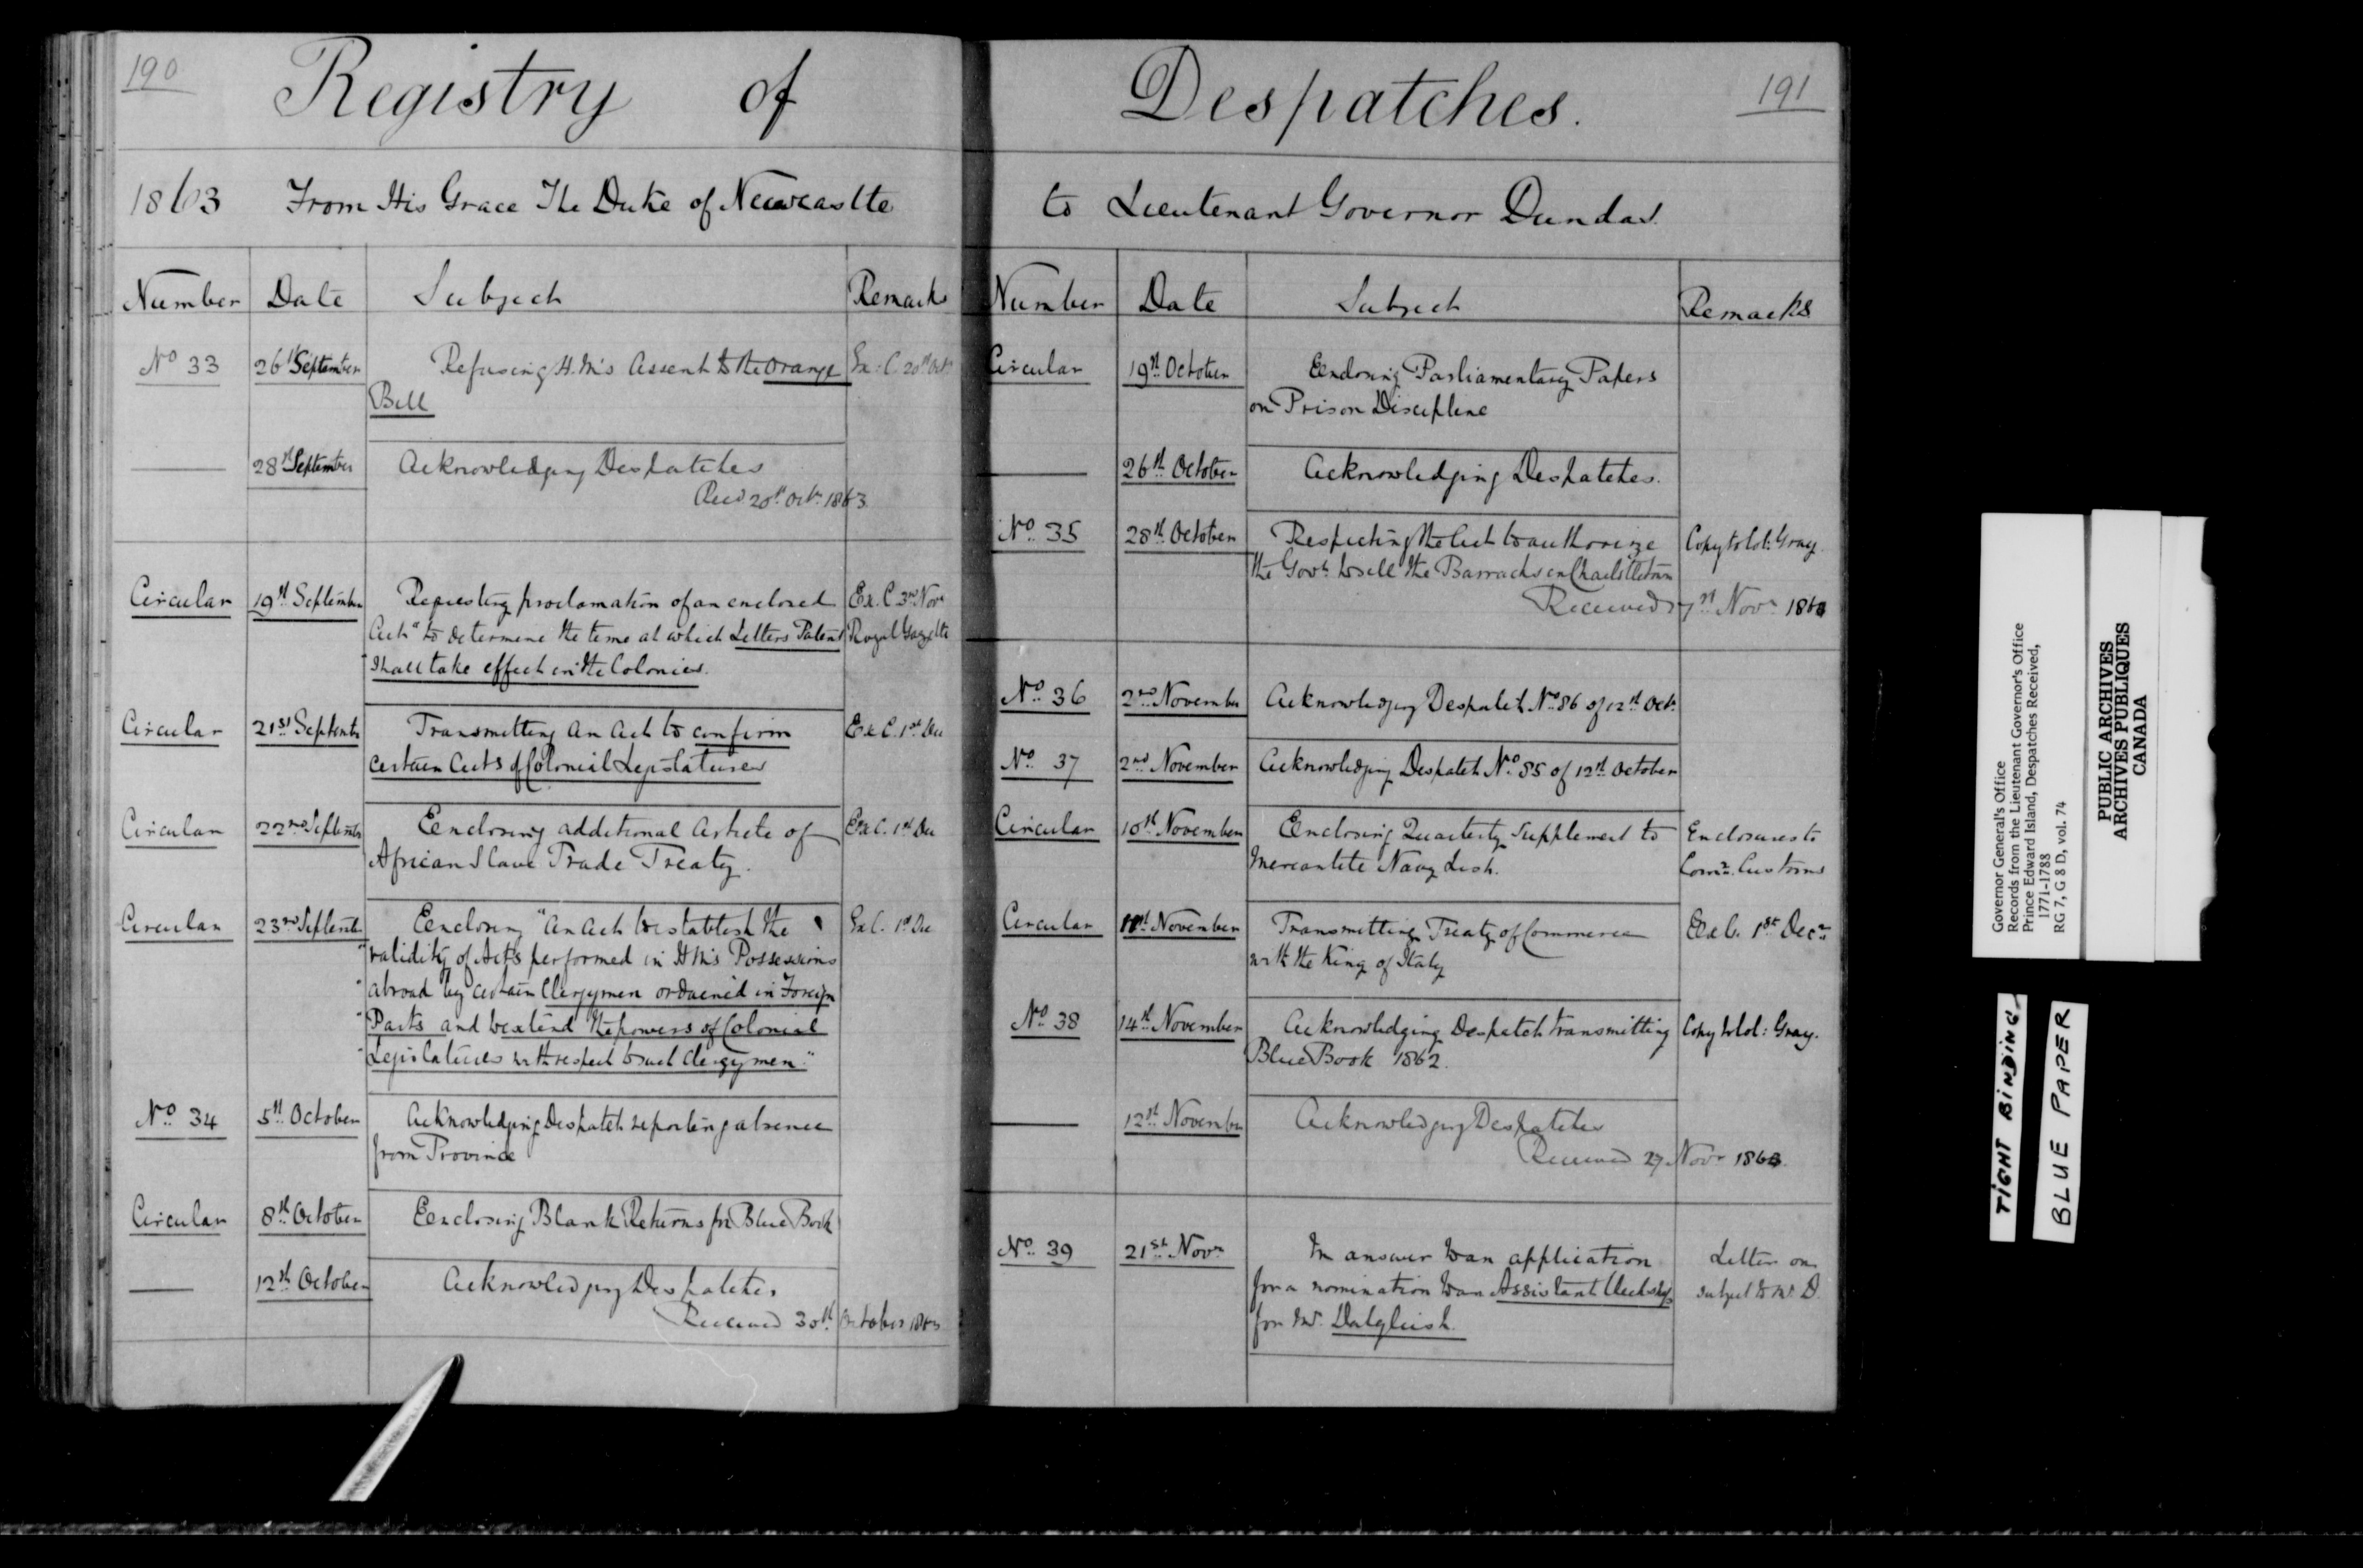 190
Registry of
1863 From His Grace The Duke of Newcastle
Number Date Subject Remarks
No 33 26th September Refusing H.M's Assent to the Orange Ex: C. 20th Octr
Bill
28th September Acknowledging Despatches
Recd 20th Octr 1863
Circular 19th September Requesting proclamation of an enclosed Ex. C 3rd Novr
Act "to determine the time at which Letters Patent Royal Gazette
"shall take effect in the Colonies.
Circular 21st September Transmitting an Act to confirm Ex C. 1st Dec
certain Acts of Colonial Legislatures
Circular 22nd September Enclosing additional Article of Ex C. 1st Dec
African Slave Trade Treaty.
Circular 23rd September Enclosing "An Act to establish the Ex C. 1st Dec
"validity of Acts performed in H M's Possessions
"abroad by certain Clergymen ordained in Foreign
"Parts and to extend the powers of Colonial
"Legislatures with respect to such Clergymen."
No 34 5th October Acknowledging Despatch reporting absence
from Province
Circular 8th October Enclosing Blank Returns for Blue Book
12th October Acknowledging Despatches
Received 30th October 1863
191
Despatches.
to Lieutenant Governor Dundas.
Number Date Subject Remarks
Circular 19th October Enclosing Parliamentary Papers
on Prison Discipline
26th October Acknowledging Despatches.
No 35 28th October Respecting the Act to authorize Copy to Col: Gray.
the Govt. to sell the Barracks in Charlottetown
Received 17th Novr 1863
No 36 2nd November Acknowledging Despatch No 86 of 12th Octr.
No 37 2nd November Acknowledging Despatch No 85 of 12th October
Circular 10th November Enclosing Quarterly Supplement to Enclosures to
Mercantile Navy List. Comr. Customs
Circular 11th November Transmitting Treaty of Commerce Ex C. 1st Decr
with the King of Italy
No 38 14th November Acknowledging Despatch transmitting Copy to Col: Gray.
Blue Book 1862.
12th November Acknowledging Despatches
Received 27 Novr 1863.
No 39 21st Novr In answer to an application Letter on
for a nomination to an Assistant Clerkship subject to Mr. D.
for Mr. Dalgleish.
Governor General's Office
Records from the Lieutenant Governor's Office
Prince Edward Island, Despatches Received,
1771-1788
RG 7, G 8 D, vol. 74
PUBLIC ARCHIVES
ARCHIVES PUBLIQUES
CANADA
TIGHT BINDING
BLUE PAPER